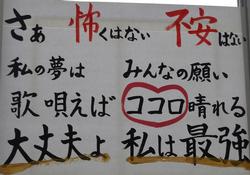 さぁ 怖くはない 不安はない
私の夢は みんなの願い
歌唄えば ココロ晴れる
大丈夫よ 私は最強